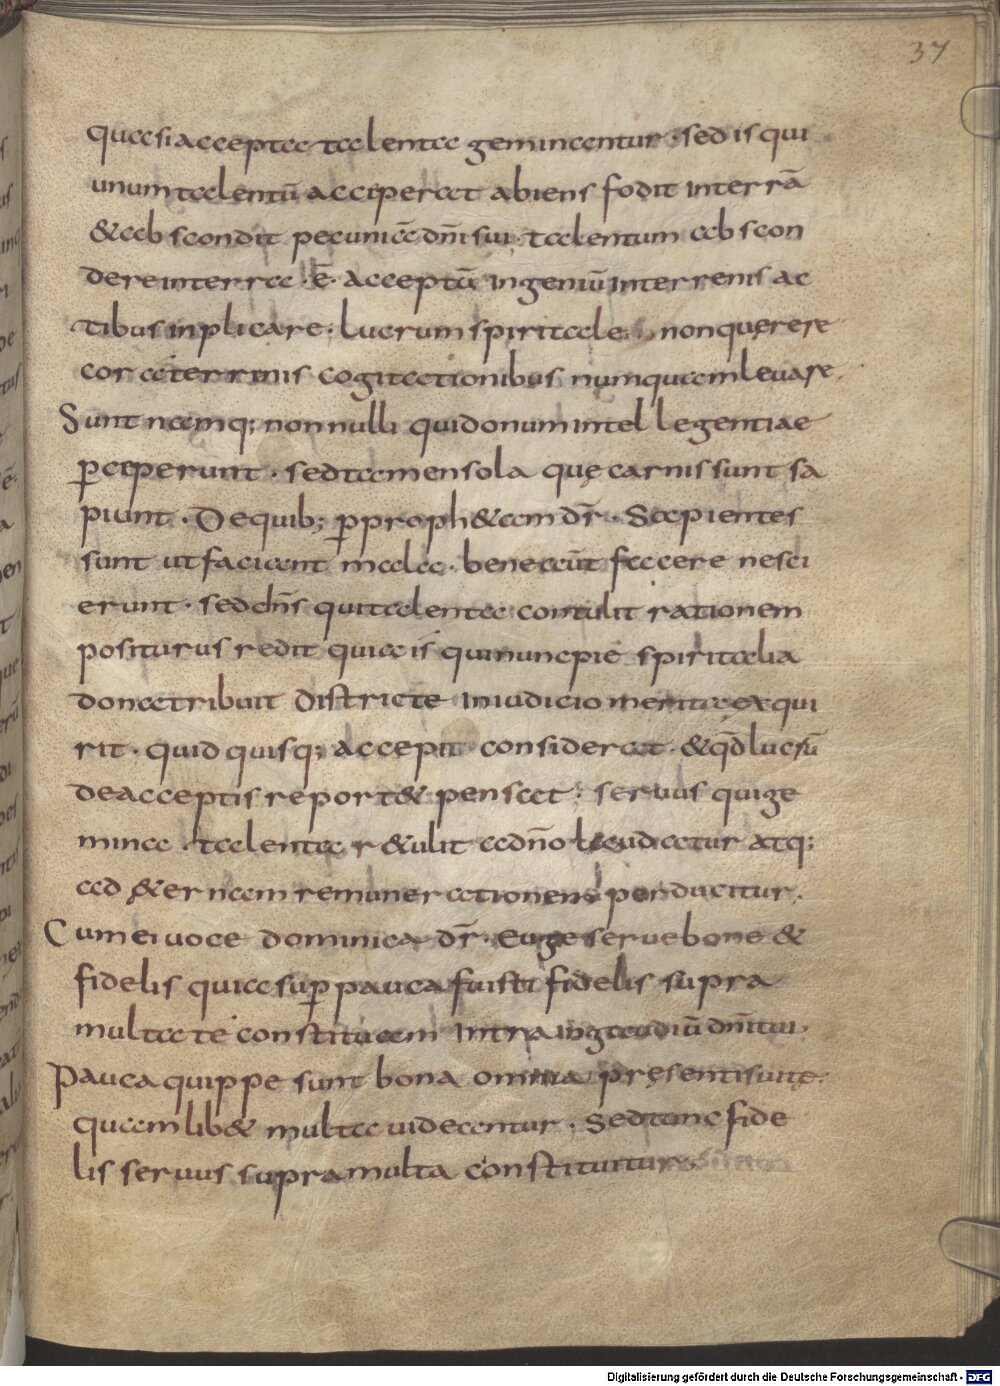 37
quasi accepta talenta geminantur · sed is qui
unum talentū acciperat abiens fodit interrā
& abscondit pecuniā dn̄i sui · talentum abscon
dere interra · ē · acceptū ingeniū interrenis ac
tibus inplicare · lucrum spiritale non querere
cor a terrenis cogitationibus numquam levare ·
Sunt namq; nonnulli qui donum intellegentiae
p̲ceperunt · sed tamen sola quę carnis sunt sa
piunt · De quib; p̲ proph&am dr̄ · Sapientes
sunt ut faciant mala · bene aūt facere nesci
erunt · sed dn̄s qui talenta contulit rationem
positurus redit quia is qui nunc pie spiritalia
dona tribuit districte in iudicio merita exqui
rit · quid quisq; accepit considerat · & qd̄ lucrū
de acceptis report& pensat · seruus qui ge
mina · talenta r&ulit a dn̄o laudatur atq;
ad &ernam remunerationem perducitur ·
Cum ei voce dominica dr̄ · Euge serue bone &
fidelis quia sup̲ pauca fuisti fidelis supra
multa te constituam intra in gaudiū dn̄i tui ·
Pauca quippe sunt bona omnia pręsentis uitę ·
quam lib& multa uideantur · Sed tunc fide
lis seruus supra multa constituitur
Digitalisierung gefördert durch die Deutsche Forschungsgemeinschaft - DFG